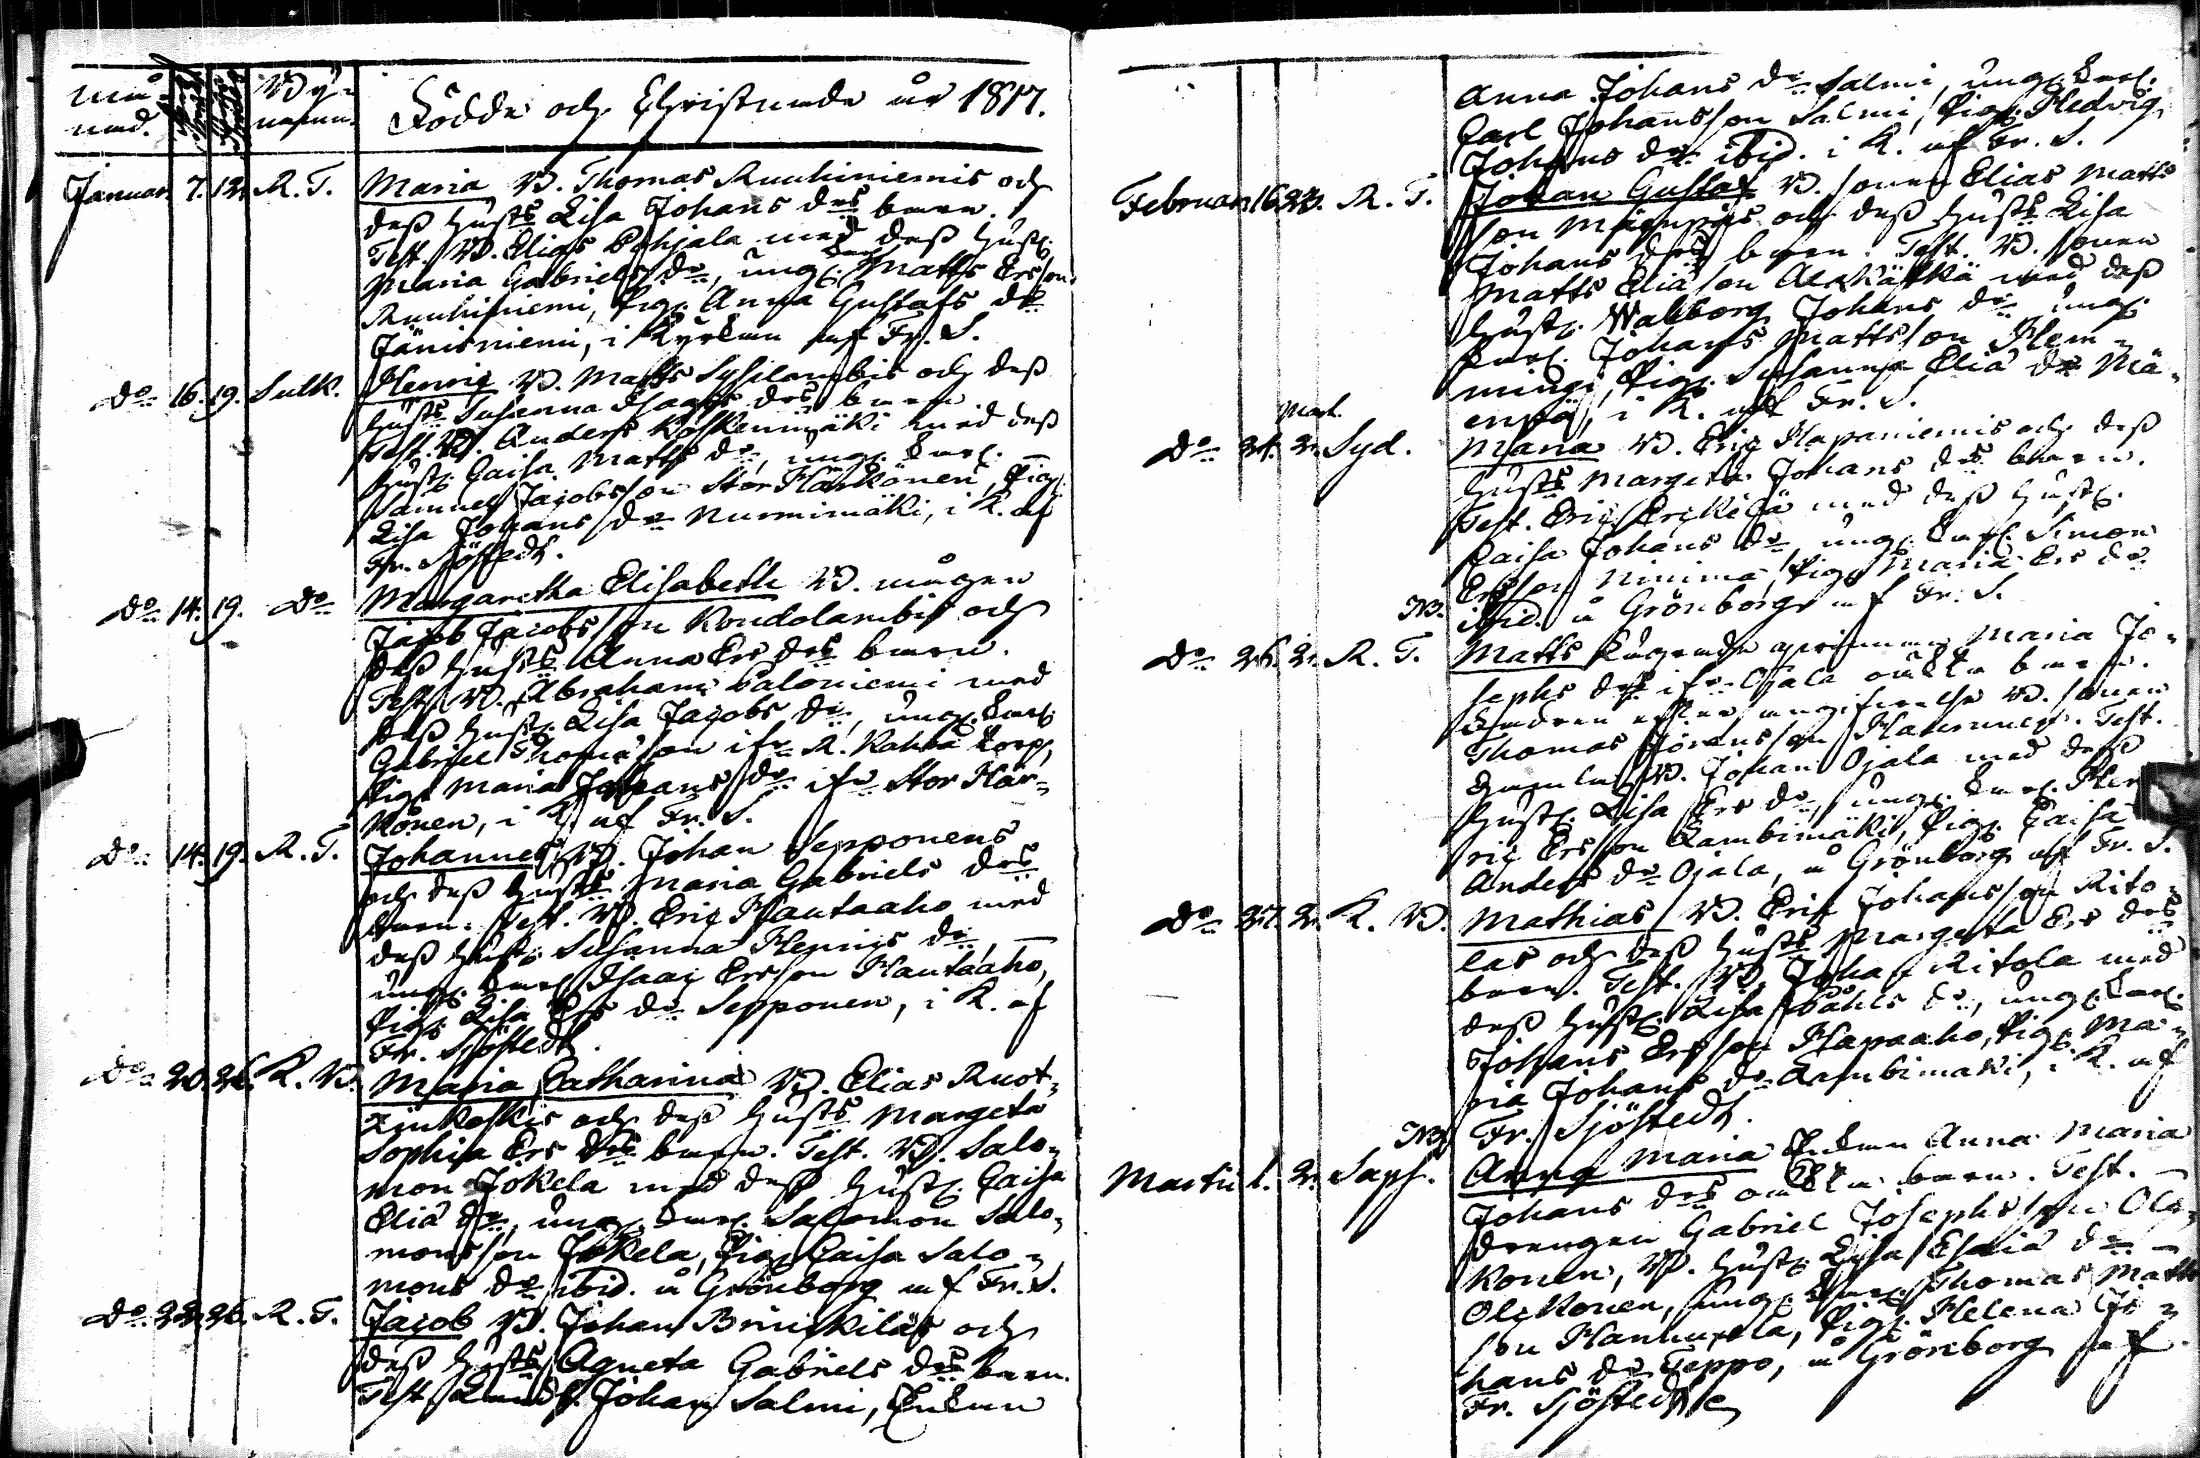 Må- Byä-
nad. namn. Födde och Christnade år 1817.
Januar. 7. 12. R. T. Maria B. Thomas Ruuhiniemis och
dess hust:s Lisa Johans d:rs barn.
Test. B. Elias Pohjala med dess hust.
Maria Gabriels d:r, ungk. Matts Ersson
Ruuhiniemi, Pig. Anna Gustafs d:r
Jänisniemi, i Kyrkan af Fr. S.
D:o 16. 19. Sulk. Henric B. Matts Sysilambis och dess
hust:s Susanna Isaacs d:rs barn
Test. B. Anders Koskenmäki med dess
hust. Caisa Matts d:r, ung. karl.
Samuel Jacobsson Stor Härkönen, Pig.
Lisa Johans d:r Nurmimäki, i K. af
Fr. Sjöstedt.
D:o 14. 19. D:o Margaretha Elisabeth B. mågen
Jacob Jacobsson Koudolambis och
dess hust:s Anna Ers d:rs barn.
Test. B. Abraham Paloniemi med
dess hust. Lisa Jacobs d:r, ung. karl.
Gabriel Thomasson ifr. R. Kahra torp,
Pig. Maria Johans d:r ifr. Stor Här-
könen, i K. af Fr. S.
D:o 14. 19. R. T. Johannes B. Johan Sepponens
och dess hust:s Maria Gabriels d:rs
barn. Test. B. Eric Hautaaho med
dess hust. Susanna Henrics d:r,
ung. karl. Isaac Ersson Hautaaho,
Pig. Lisa Ers d:r Sepponen, i K. af
Fr. Sjöstedt.
D:o 20. 26. K. B. Maria Catharina B. Elias Ruot-
zinkoskis och dess hust:s Margeta
Sophia Ers d:rs barn. Test. B. Salo-
mon Jokela med dess hust. Caisa
Elia d:r, ung. karl. Salomon Salo-
monsson Jokela, Pig. Caisa Salo-
mons d:r ibid. å Grönborg af Fr. S.
D:o 22. 26. R. T. Jacob B. Johan Brinikiläs och
dess hust:s Agneta Gabriels d:rs barn.
Test. Johan Salmi, Enkan
Anna Johans d:r Salmi, ung. karl.
Carl Johansson Salmi, Pig. Hedvig
Johans d:r ibid. i K. af Fr. S.
Februar. 16. 23. R. T. Johan Gustaf B. sonen Elias Matts
son Mäenpäs och dess hust:s Lisa
Johans d:rs barn. Test. B. sonen
Matts Eliasson Alakätkä med dess
hust. Walborg Johans d:r, ung.
karl. Johans Mattsson Hem-
mingi, Pig. Susanna Elia d:r Mä-
enpä, i K. af Fr. S.
Mart.
D:o 24. 2. Syd. Maria B. Eric Hapaniemis och dess
hust:s Margeta Johans d:rs barn.
Test. Eric Erckilä med dess hust.
Caisa Johans d:r, ung. karl. Simon
Ersson Niinimä, Pig. Maria Ers d:r
NB. ibid. å Grönborg af Fr. S.
D:o 26. 2. R. T. Matts Lägrade qvinnan Maria Jo-
sephs d:rs ifr. Ojala oäkta barn.
Thomas Göransson. Test.
B. Johan Ojala med dess
hust. Lisa Ers d:r, ung. karl. Hen
ric Ersson Lambimäki, Pig. Caisa
Anders d:r Ojala, å Grönborg af Fr. S.
D:o 27. 2. K. B. Mathias B. Eric Johansson Rito-
las och dess hust:s Margeta Ers d:rs
barn. Test. B. Johan Ritola med
dess hust. Lisa Påhls d:r, ung. karl.
Johans Ersson Hapaaho, Pig. Ma-
ria Johans d:r Lambimäki, i K. af
Fr. Sjöstedt.
NB.
Martii 1. 2. Saps. Anna Maria Enkan Anna Maria
Johans d:rs oäkta barn. Test.
drengen Gabriel Josephsson Olc-
konen, B. hust. Lisa Esaia d:r
Olckonen, ung. karl. Thomas Matts
son Hanhuxela, Pig. Helena Jo-
hans d:r Seppo, å Grönborg af
Fr. Sjöstedt